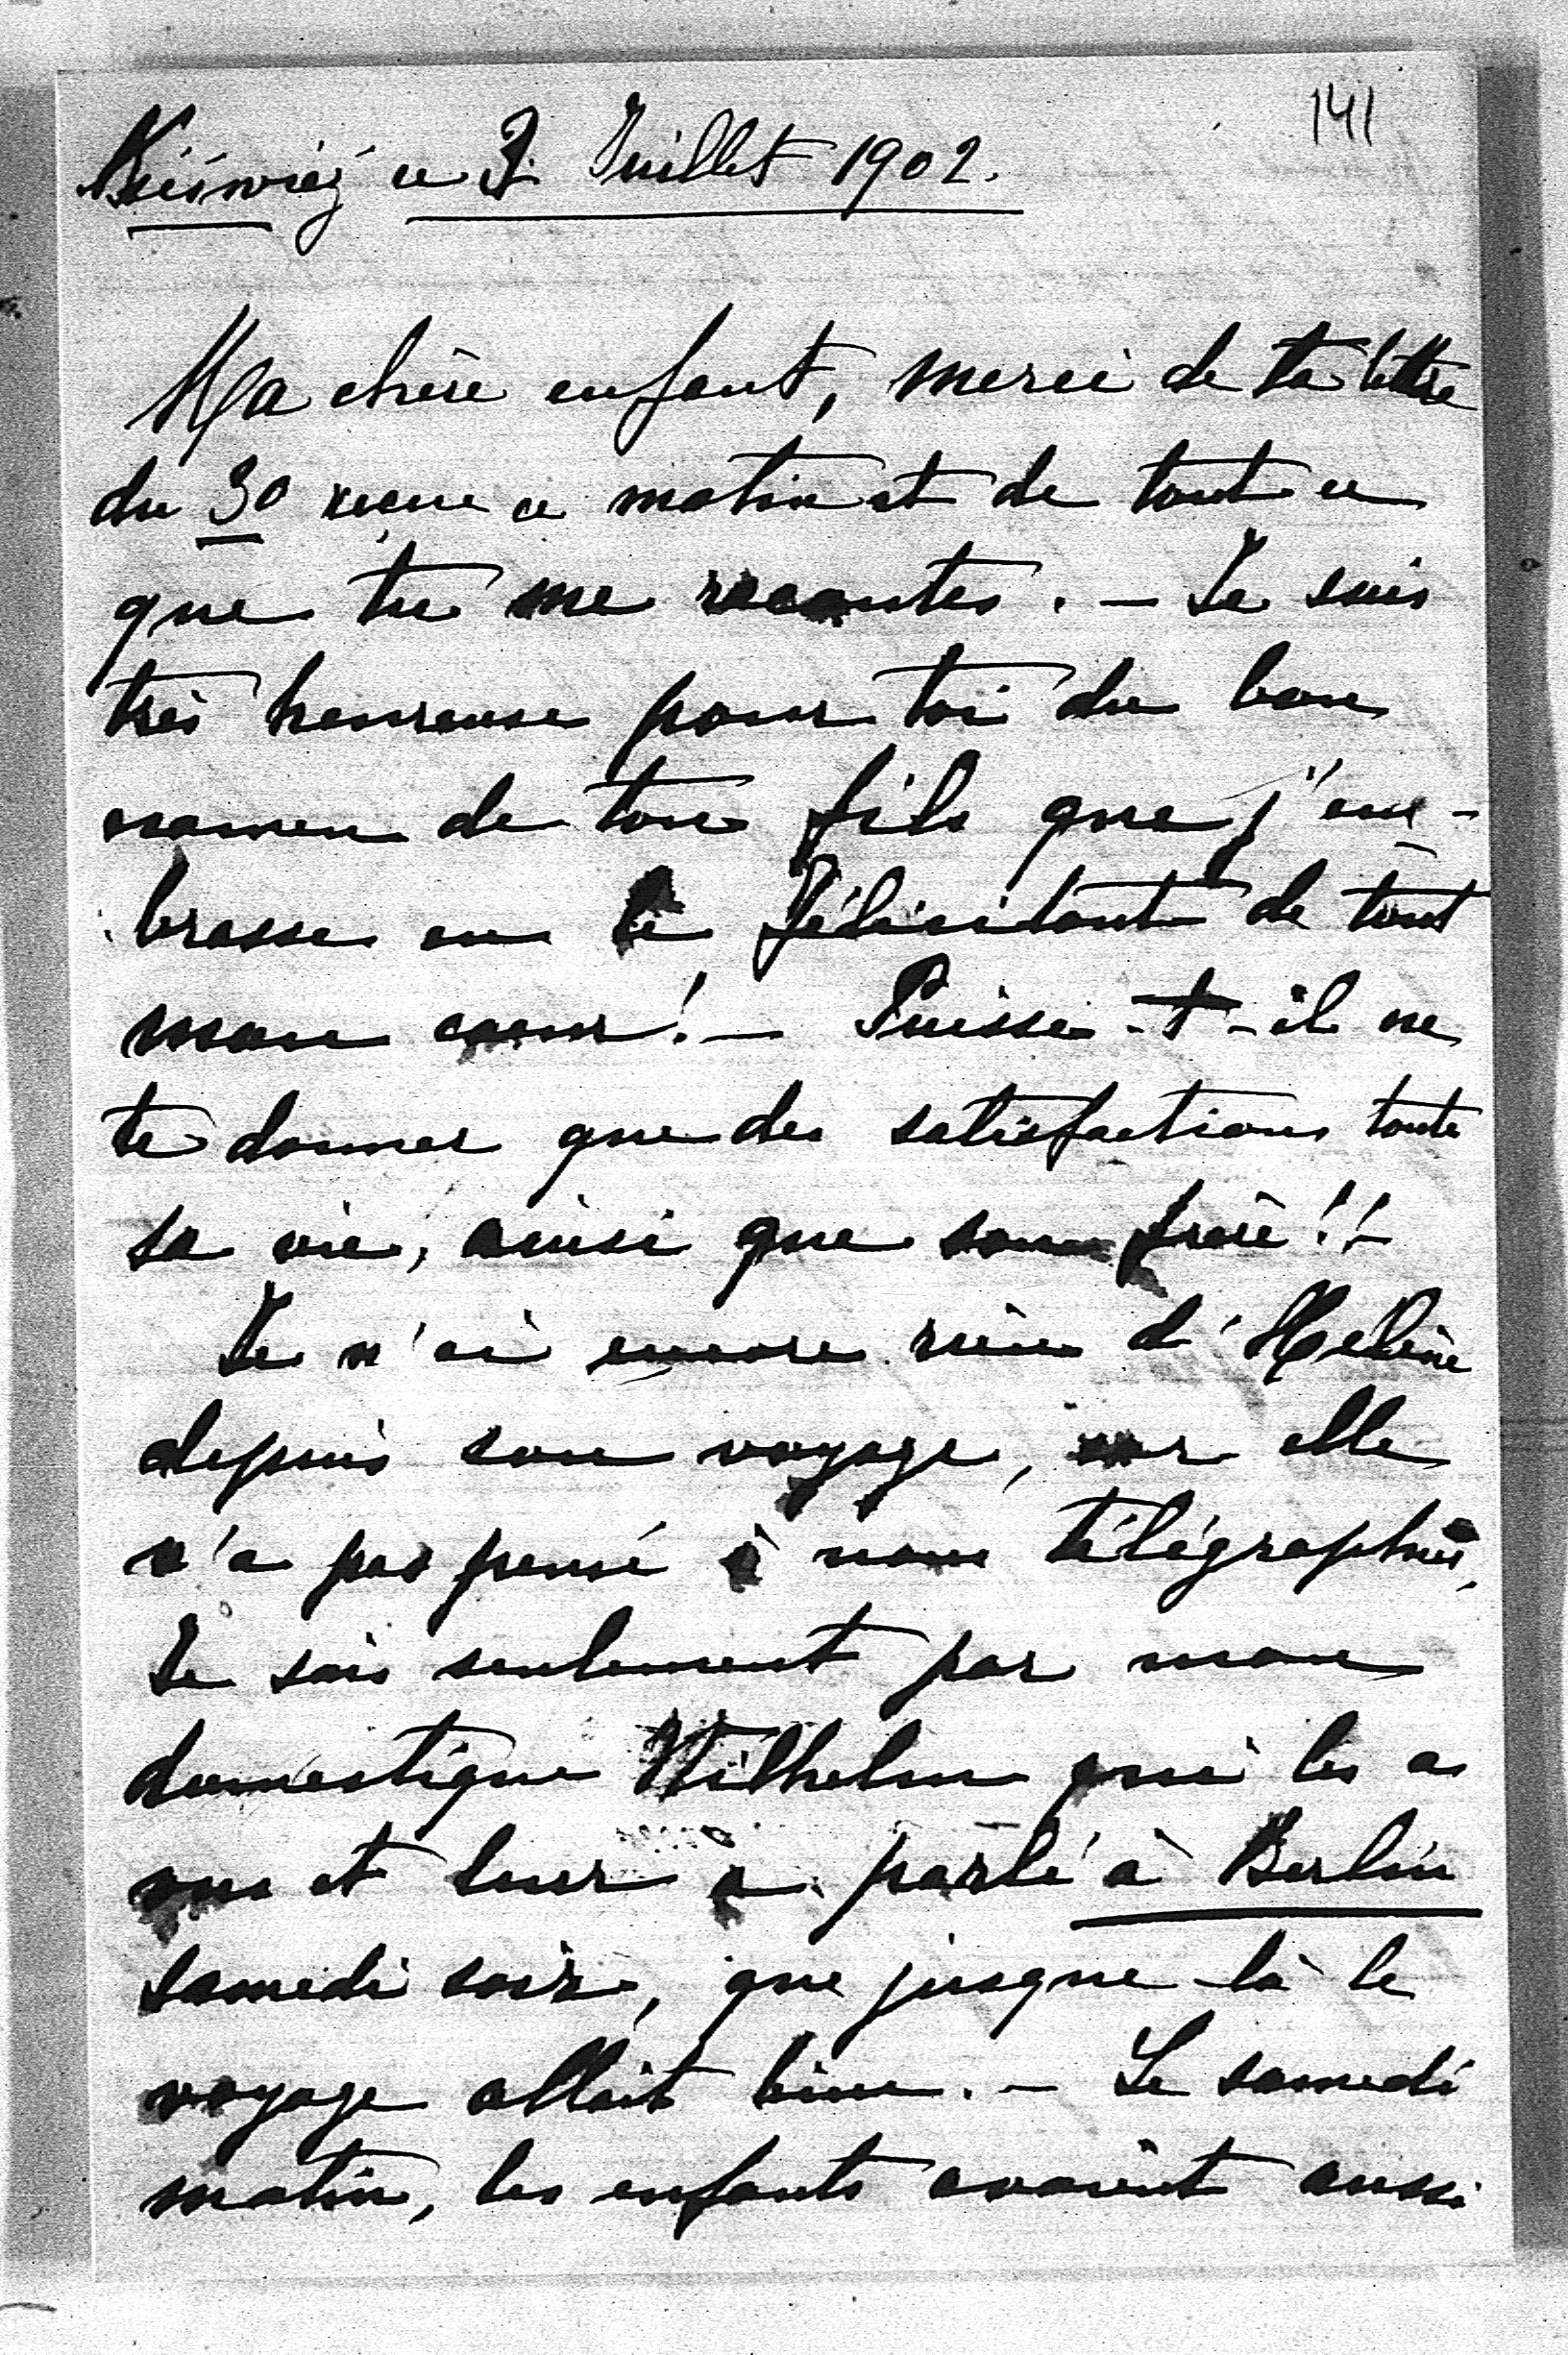 141
Nieśwież ce 3 Juillet 1902.
Ma chère enfant, merci de ta lettre
du 30 reçue ce matin et de tout ce
que tu me racontes. — Je suis
très heureuse pour toi du bon
examen de ton fils que j'em-
brasse en le félicitant de tout
mon cœur! — Puisse-t-il ne
te donner que des satisfactions toute
sa vie, ainsi que son frère!! —
Je n'ai encore rien d'Hélène
depuis son voyage, car elle
n'a pas pensé à nous télégraphier,
Je sais seulement par mon
domestique Wilhelm qui les a
vus et leur a parlé à Berlin
samedi soir, que jusque là le
voyage allait bien. — Le samedi
matin, les enfants avaient aussi